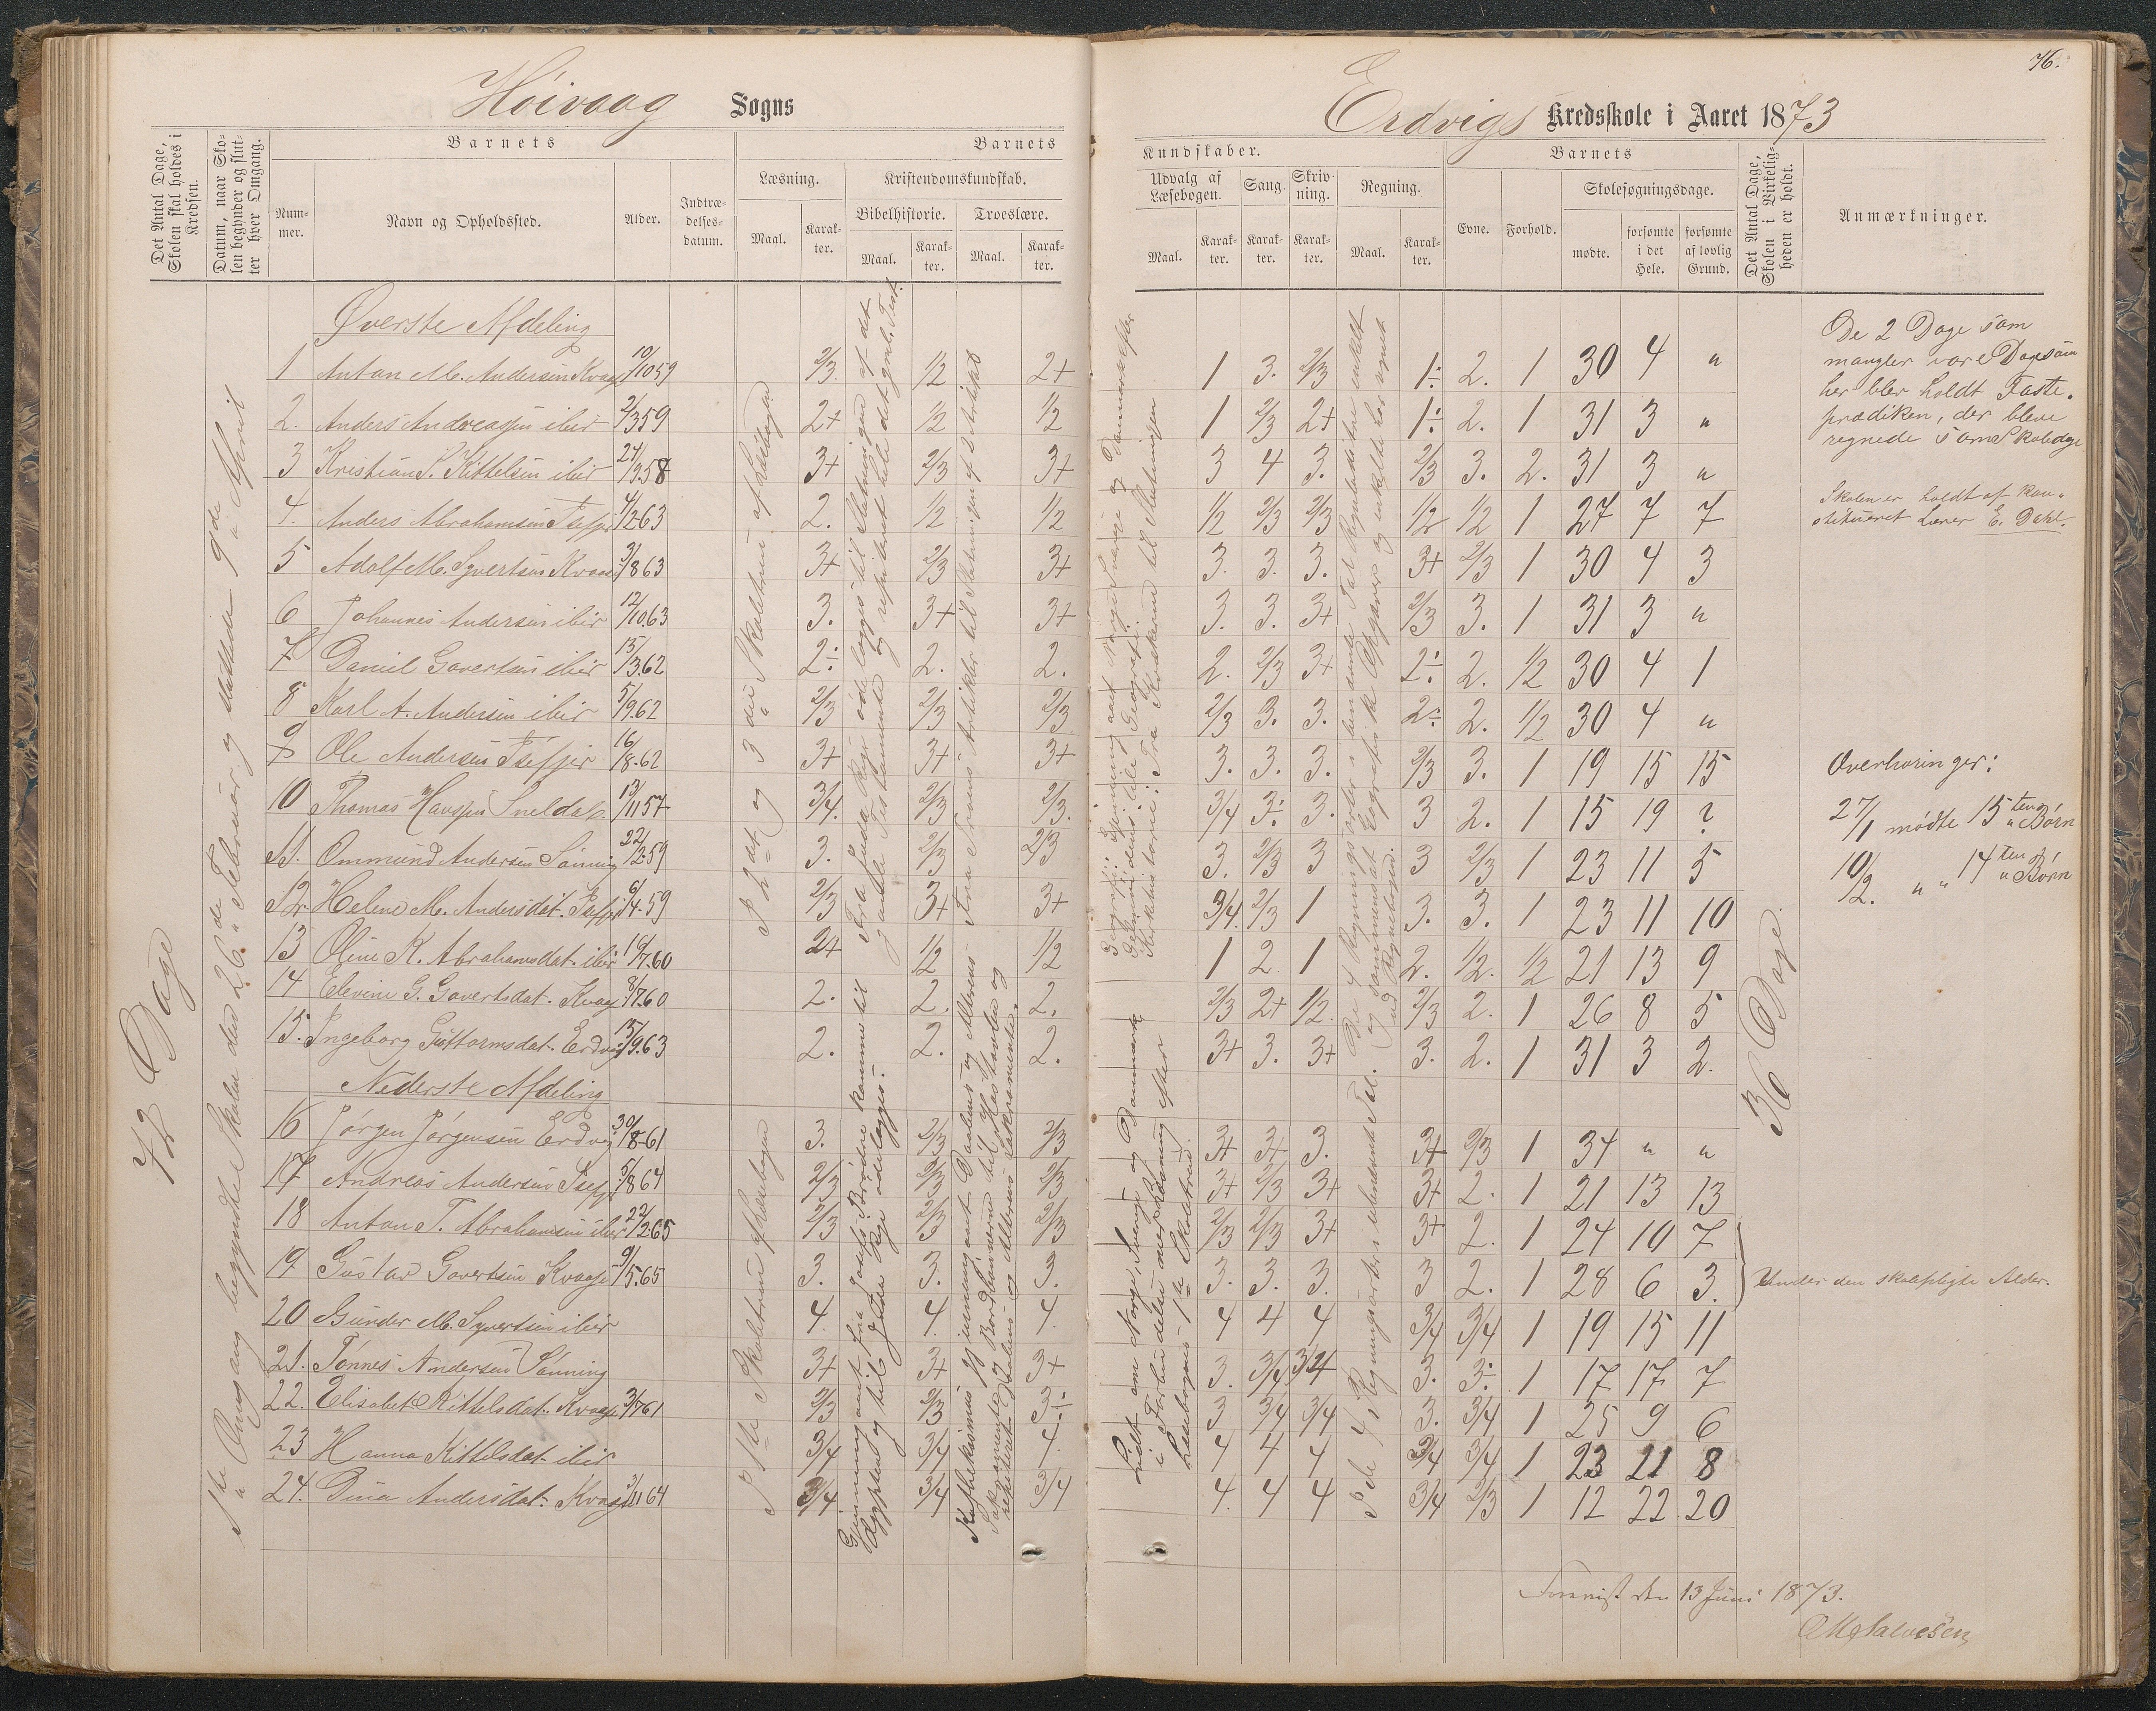 76.
Høivaag Sogns
Erdvigs Kredsskole i Aaret 1873
Det Antal Dage, Skolen skal holdes i Kredsen.
Datum, naar Skolen begynder og slutter hver Omgang.
Barnets
Nummer.
Navn og Opholdssted.
Alder.
Indtrædelsesdatum.
Barnets
Læsning.
Maal.
Karakter.
Kristendomskundskab.
Bibelhistorie.
Maal.
Karakter.
Troeslære.
Maal.
Karakter.
Kundskaber.
Udvalg af Læsebogen.
Maal.
Karakter.
Sang.
Karakter.
Skrivning.
Karakter.
Regning.
Maal.
Karakter.
Barnets
Evne.
Forhold.
Skolesøgningsdage.
mødte.
forsømte i det Hele.
forsømte af lovlig Grund.
Det Antal Dage, Skolen i Virkeligheden er holdt.
Anmærkninger.
72 Dage
1ste Omgang begyndte Skolen den 26de Februar og sluttede 9de April
Øverste Afdeling
1 Anton M. Andersen Kvaase 10/10 59 2/3. 1/2 2+ 1 3. 2/3 1÷ 2. 1 30 4 "
2. Anders Andreassen ibid 2/3 59 2+ 1/2 1/2 1 2/3 2+ 1÷ 2. 1 31 3 "
3 Kristian S. Kittelsen ibid 24/9 58 3+ 2/3 3+ 3 4 3. 2/3 3. 2. 31 3 "
4. Anders Abrahamsen Isefjer 4/2 63 2. 1/2 1/2 1/2 2/3 2/3 1/2 1/2 1 27 7 7
5 Adolf M. Syvertsen Kvaase 3/8 63 3+ 2/3 3+ 3. 3. 3. 3+ 2/3 1 30 4 3
6 Johannes Andersen ibid 12/10 63 3. 3+ 3+ 3. 3. 3+ 2/3 3. 1 31 3 "
7 Daniel Govertsen ibid 15/3 62 2÷ 2. 2. 2. 2/3 3+ 2÷ 2. 1/2 30 4 1
8 Karl A. Andersen ibid 5/9 62 2/3 2/3 2/3 2/3 3. 3. 2÷ 2. 1/2 30 4 "
9 Ole Andersen Isefjer 16/8 62 3+ 3+ 3+ 3. 3. 3. 2/3 3. 1 19 15 15
10 Thomas 13/11 57 3/4. 2/3 2/3. 3/4 3÷ 3. 3 2. 1 15 19 ?
11. Ommund Andersen Sønning 22/2 59 3. 2/3 2/3 3. 2/3 3 3 2/3 1 23 11 5
12. Helene M. Andersdat. Isefjer 6/4 59 2/3 3+ 3+ 3/4. 2/3 1 3. 3. 1 23 11 10
13 Oline K. Abrahamsdat. ibid 16/7 60 2+ 1/2 1/2 1 2 1 2. 1/2. 1/2 21 13 9
14 Elevine G. Govertsdat. Kvaase 8/7 60 2. 2. 2. 2/3 2+ 1/2. 2/3 2. 1 26 8 5
15. Ingeborg Guttormsdat. Erdvig 15/9 63 2. 2. 2. 3+ 3. 3+ 3. 2. 1 31 3 2.
Nederste Afdeling
16 Jørgen Jørgensen Erdvig 30/8 61 3. 2/3 2/3 3+ 3+ 3. 3+ 2/3 1 34 " "
17 Andreas Andersen Isefjer 5/8 64 2/3 2/3 2/3 3+ 2/3 3+ 3+ 2. 1 21 13 13
18 Anton T. Abrahamsen ibid 22/2 65 2/3 2/3 2/3 2/3 2/3 3+ 3+ 2. 1 24 10 7
19 Gustav Govertsen Kvaase 9/5 65 3. 3. 3. 3. 3. 3. 3 2. 1 28 6 3.
20 Gunder M. Syvertsen ibid 4. 4. 4. 4 4 4 3/4 3/4 1 19 15 11
21. Tønnes Andersen Sønning 3+ 3+ 3+ 3. 3/4 3/4 3. 3÷ 1 17 17 7
22. Elisabet Kittelsdat. Kvaase 3/7 61 2/3 2/3 3÷ 3 3/4 3/4 3. 3/4 1 25 9 6
23 Hanna Kittelsdat. ibid 3/4 3/4 4. 4 4 4 3/4 3/4 1 23 11 8
24. Dina Andersdat. Kvaase 3/11 64 3/4. 3/4 3/4 4. 4 4 3/4 2/3 1 12 22 20
P 2det og 3die Skoletrin af Læsebogen
P 1ste Skoletrin af Læsebogen
Fra Juda Rige ødelægges til Slutningen af det gamle Testamente og repeteret hele det gml. Test.
Gjennemgaaet fra Josefs Brødre komme til Ægypten og til Juda Rige ødelægges.
36 Dage.
De 2 Dage som
mangler vare Dage som
her blev holdt Faste-
prædiken, der bleve
regnede som Skoledage
Skolen er holdt af kon-
stitueret Lærer E. Dahl.
Overhøringer:
27/1 mødte 15ten Børn
10/2. " " 14ten Børn
Under den skolepligte Alder.
Forevist den 13 Juni 1873.